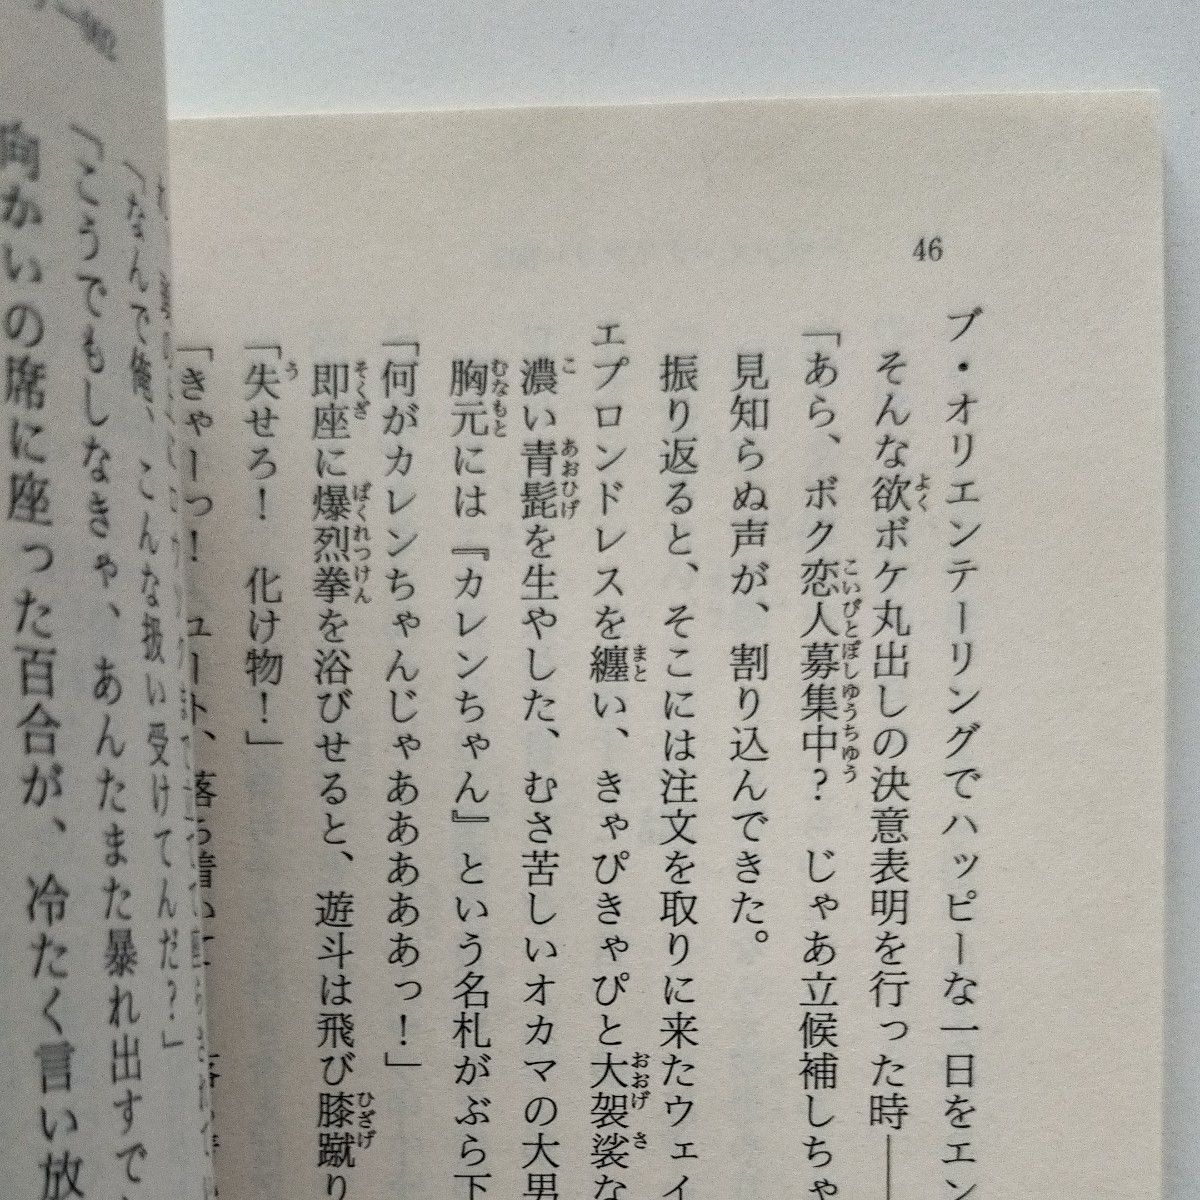 46
ブ・オリエンテーリングでハッピーな一日をエン
そんな欲ボケ丸出しの決意表明を行った時――
「あら、ボク恋人募集中？　じゃあ立候補しちゃ
見知らぬ声が、割り込んできた。
振り返ると、そこには注文を取りに来たウェイ
エプロンドレスを纏い、きゃぴきゃぴと大袈裟な
濃い青髭を生やした、むさ苦しいオカマの大男
胸元には『カレンちゃん』という名札がぶら下
「何がカレンちゃんじゃあああああっ！」
即座に爆烈拳を浴びせると、遊斗は飛び膝蹴り
「失せろ！　化け物！」
「きゃーっ！　ユート、落ち着いて
「なんで俺、こんな扱い受けてんだ？」
「こうでもしなきゃ、あんたまた暴れ出すで
向かいの席に座った百合が、冷たく言い放